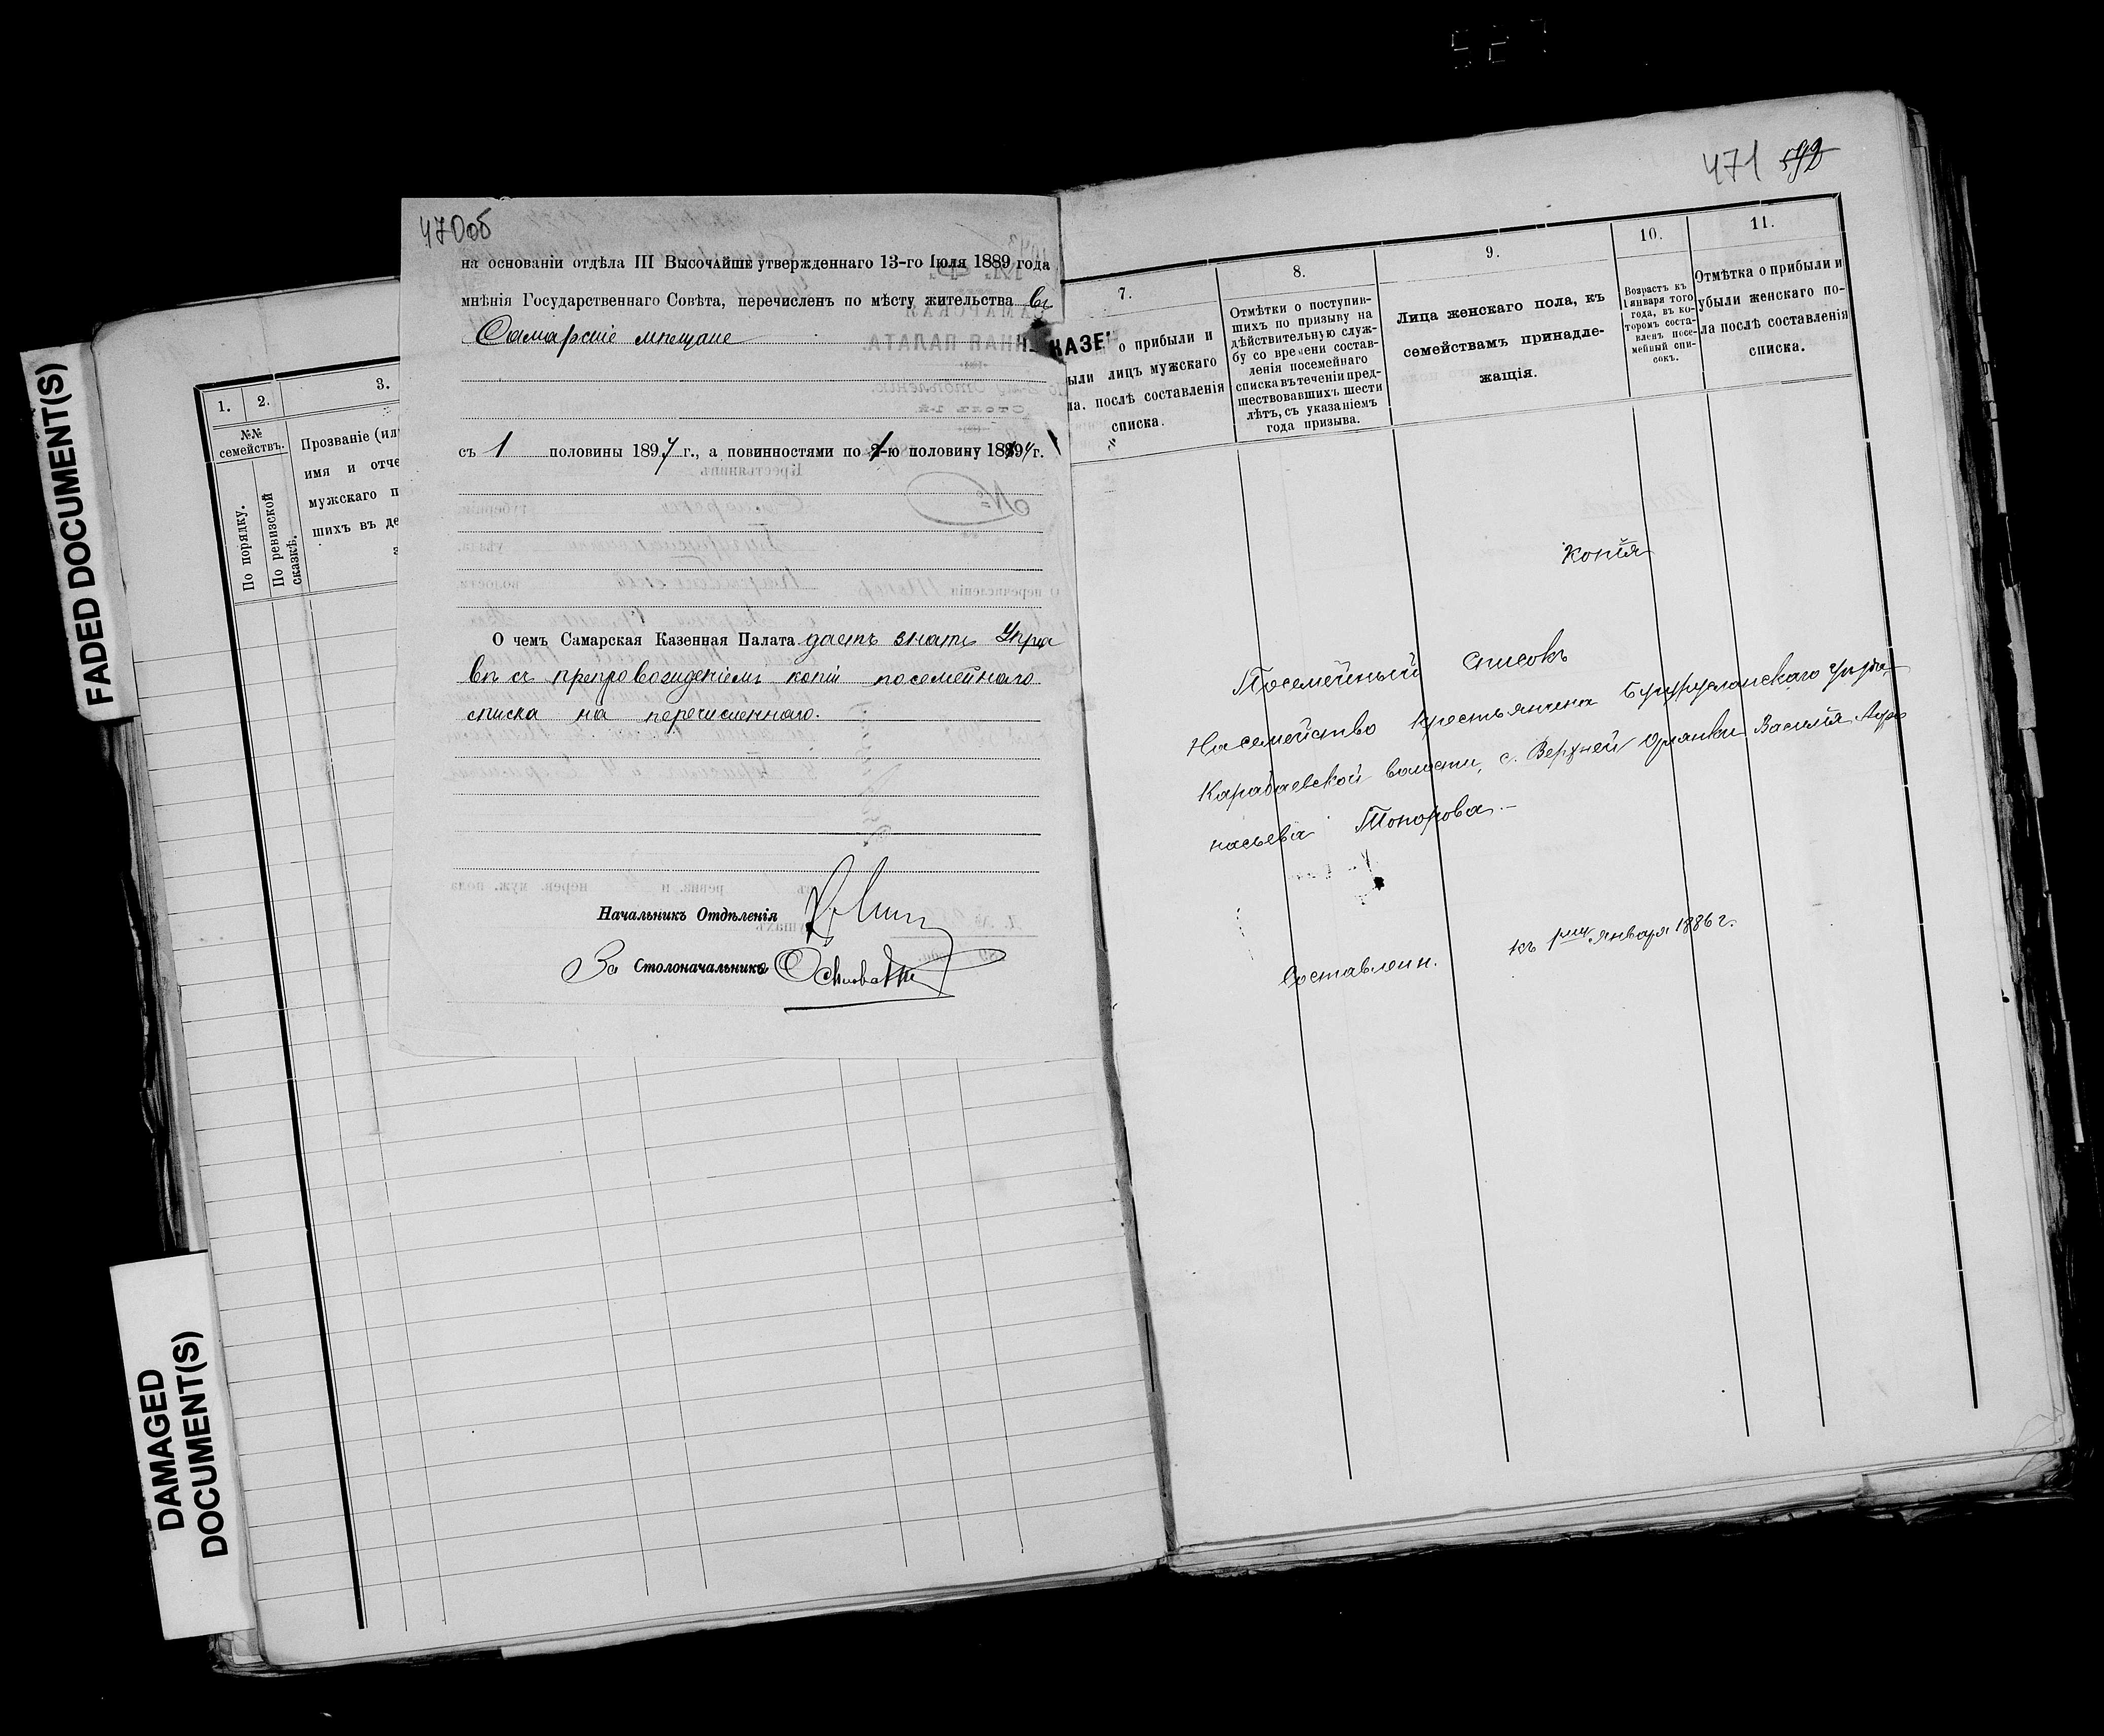 527
FADED DOCUMENT(S)
DAMAGED
DOCUMENT(S)
1.
2.
3.
№№
семействъ.
По порядку.
По ревизской
сказкѣ.
Прозваніе (или
имя и отче
мужскаго п
шихъ въ де
470об
на основаніи отдѣла III Высочайше утвержденнаго 13-го Іюля 1889 года
мнѣнія Государственнаго Совѣта, перечисленъ по мѣсту жительства въ
Самарскіе мѣщане
съ 1 половины 1897 г., а повинностями по 1-ю половину 1894 г.
О чемъ Самарская Казенная Палата даетъ знать Упра
вѣ съ препровожденіемъ копіи посемейнаго
списка на перечисленнаго.
Начальникъ Отдѣленія
За Столоначальника
КАЗЕ
471 592
7.
о прибыли и
ыли лицъ мужскаго
ла. послѣ составленія
списка.
8.
Отмѣтки о поступив-
шихъ по призыву на
дѣйствительную служ-
бу со времени состав-
ленія посемейнаго
списка въ теченіи пред-
шествовавшихъ шести
лѣтъ, съ указаніемъ
года призыва.
9.
Лица женскаго пола, къ
семействамъ принадле-
жащія.
10.
Возрастъ къ
1 января того
года, въ ко-
торомъ соста-
вленъ посе-
мейный спи-
сокъ.
11.
Отмѣтка о прибыли и
убыли женскаго по-
ла послѣ составленія
списка.
Копія
Посемейный списокъ
На семейство крестьянина Бугурусланскаго уѣзда,
Карабаевской волости, с. Верхней Орлянки Василія Афо
насьева Топорова.
Составленъ. къ 1му января 1886 г.